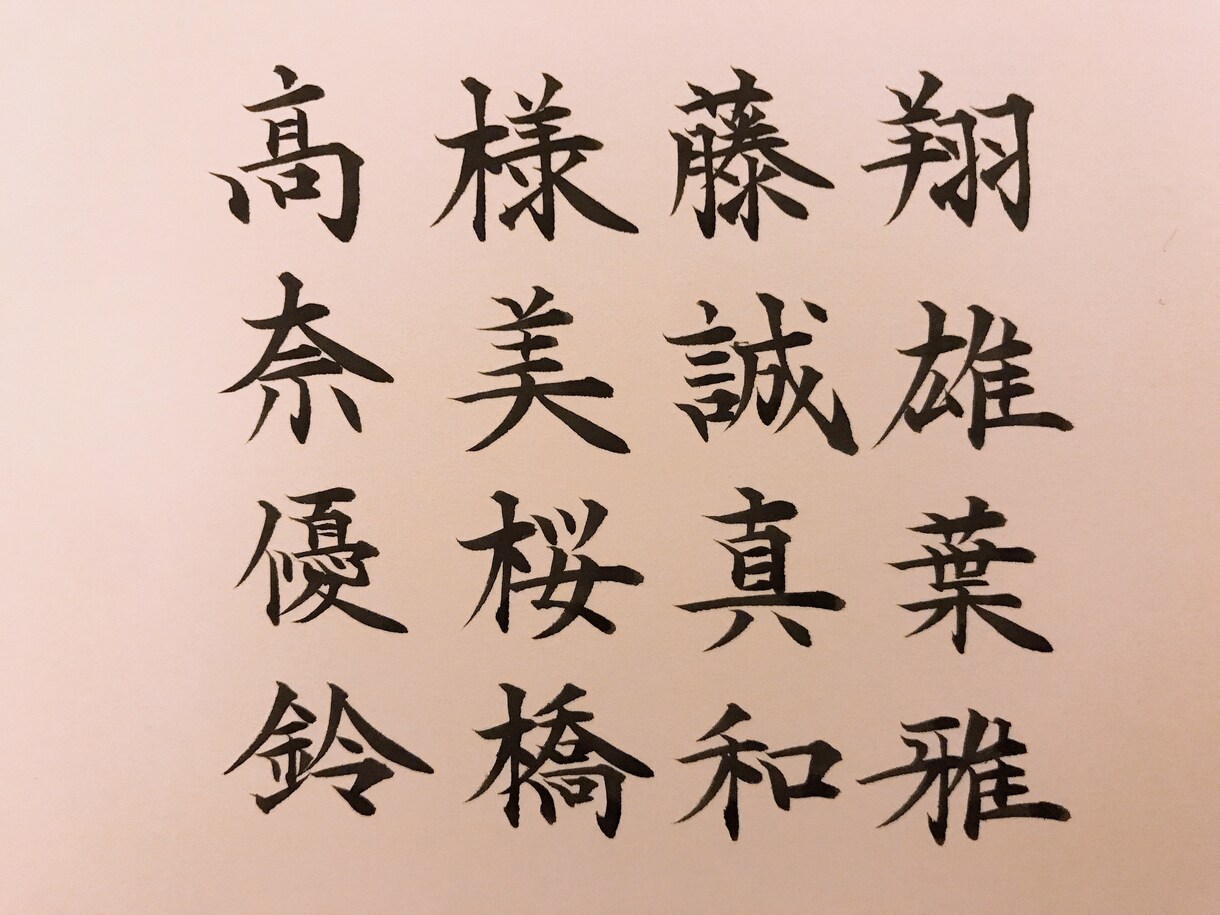 髙様藤翔
奈美誠雄
優桜真葉
鈴橋和雅